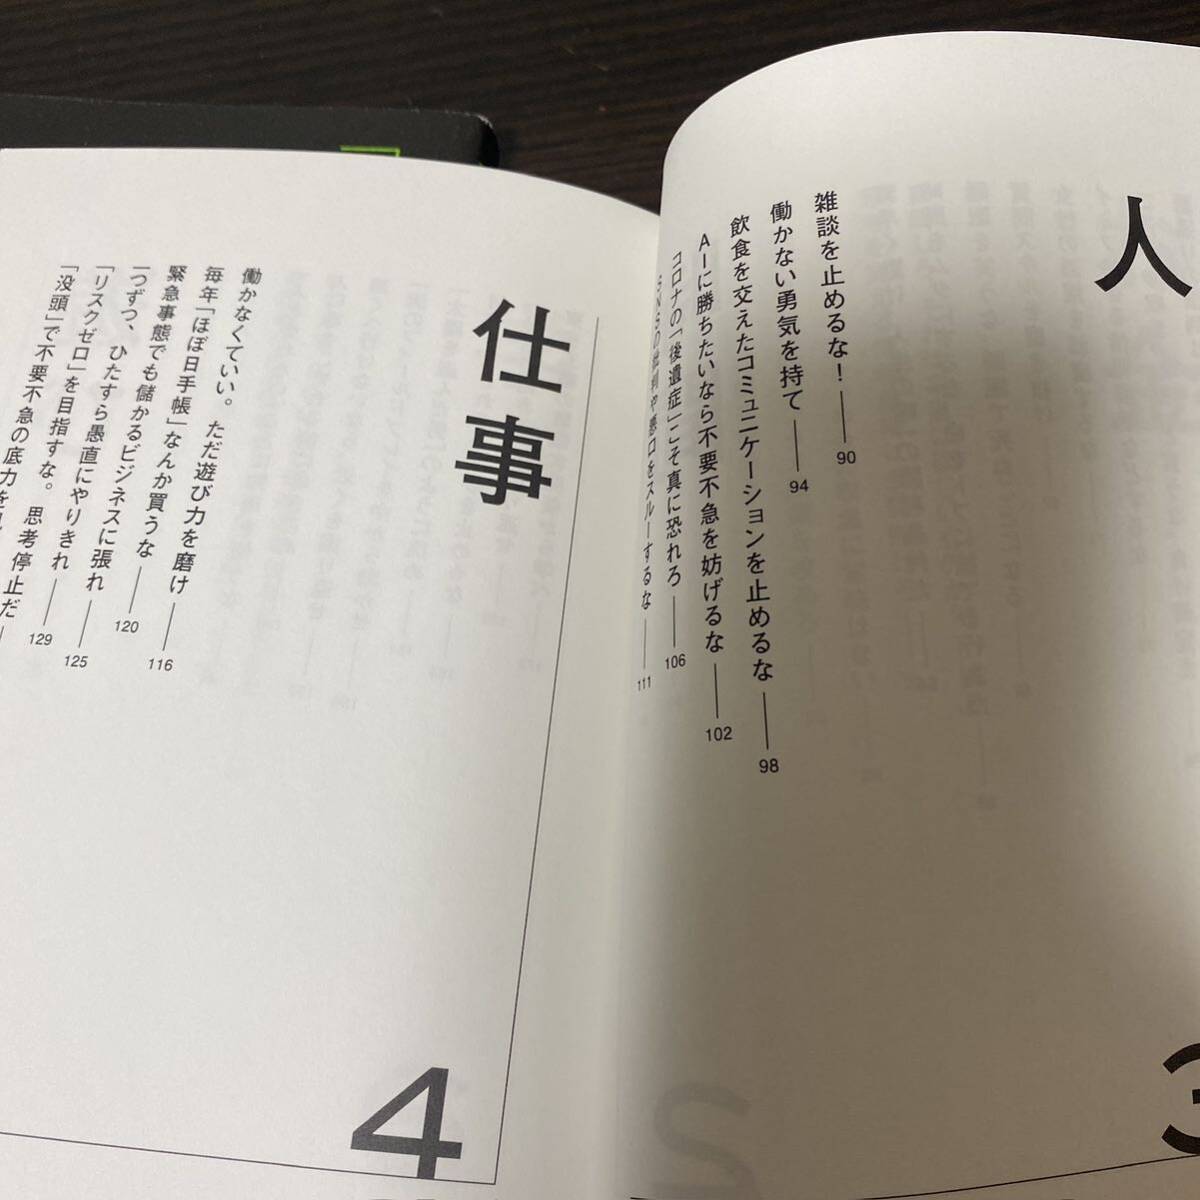 人
雑談を止めるな！ 90
働かない勇気を持て 94
飲食を交えたコミュニケーションを止めるな 98
AIに勝ちたいなら不要不急を妨げるな 102
コロナの「後遺症」こそ真に恐れろ 106
SNSの批判や悪口をスルーするな 111
3
仕事
働かなくていい。ただ遊び力を磨け 116
毎年「ほぼ日手帳」なんか買うな 120
緊急事態でも儲かるビジネスに張れ 125
一つずつ、ひたすら愚直にやりきれ 129
「リスクゼロ」を目指すな。思考停止だ
「没頭」で不要不急の底力を
4